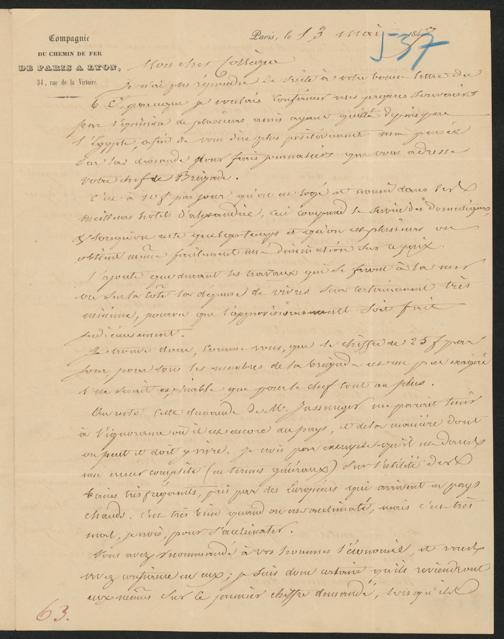 Compagnie
DU CHEMIN DE FER
DE PARIS A LYON,
34, rue de la Victoire.
Paris, le 13 mai 1847
537
Mon cher Collègue
Je n'ai pas répondu de suite à votre bonne lettre du
6 Ct parceque je voulais confirmer mes propres souvenirs
par l'expérience de plusieurs amis ayant quitté depuis peu
l'Egypte, afin de vous dire plus positivement ma pensée
sur la demande pour frais journaliers que vous adresse
votre chef de Brigade.
C'est à 10 f par jour qu'on est logé et nourri dans les
meilleurs hotels d'alexandrie, y compris le service des domestiques,
et lorsqu'on reste quelque temps et qu'on est plusieurs on
obtient même facilement une diminution sur ce prix.
J'ajoute que durant les travaux qui se feront à la mer
ou sur la côte la dépense de vivres sera certainement très
minime, pourvu que l'approvisionnement soit fait
judicieusement.
Je trouve donc, comme vous, que le chiffre de 25 f par
jour pour tous les membres de la brigade est un peu exagéré
et ne serait explicable que pour le chef tout au plus.
Du reste cette demande de Mr me parait tenir
à l'ignorance où il est encore du pays, et de la manière dont
on peut et doit y vivre. Je crois par exemple qu'il est dans
une erreur complète (en termes généraux) sur l'utilité des
bains très fréquents, pris par des Européens qui arrivent en pays
chauds. C'est très bien quand on est acclimaté, mais c'est très
mal, je crois, pour s'acclimater.
Vous avez recommandé à vos hommes l'économie, et vous
avez confiance en eux; je suis donc certain qu'ils reviendront
eux mêmes sur le premier chiffre demandé, lorsqu'ils
63.